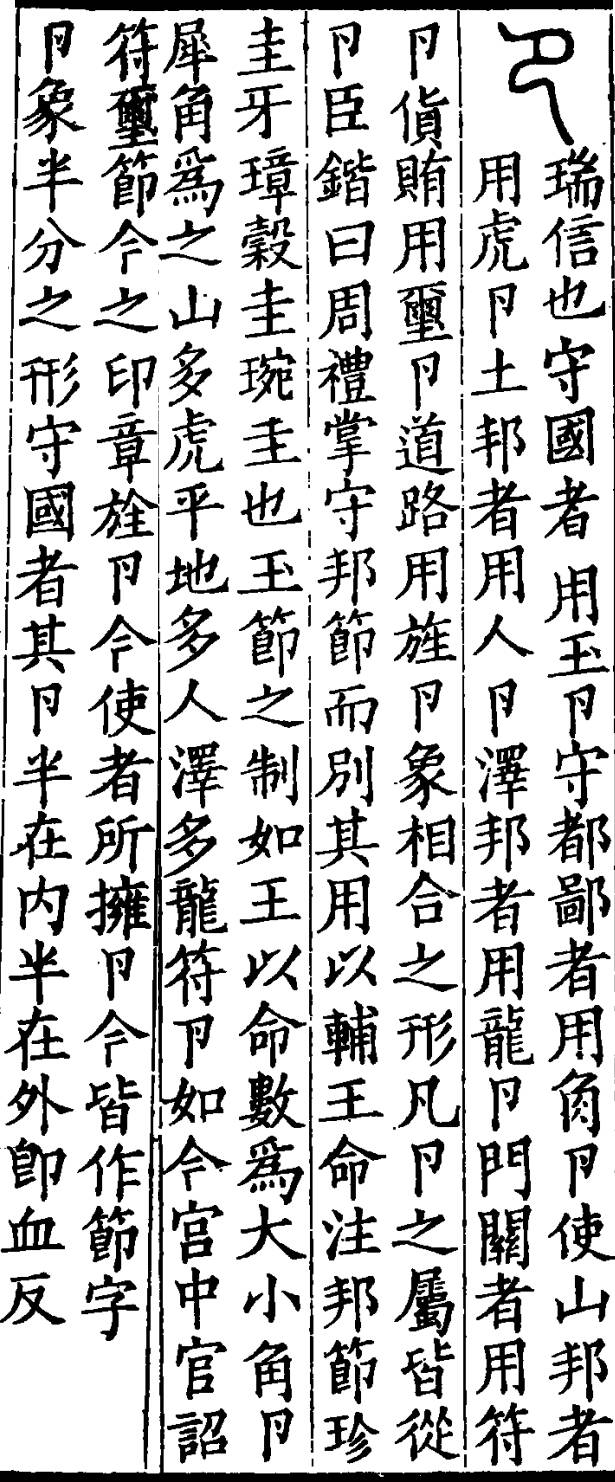 卪瑞信也守國者用玉卪守都鄙者用角卪使山邦者
用虎卪土邦者用人卪澤邦者用龍卪門關者用符
卪貨賄用壐卪道路用旌卪象相合之形凡卪之屬皆從
卪臣鍇曰周禮掌守邦節而別其用以輔王命注邦節珍
圭牙璋穀圭琬圭也玉節之制如王以命數爲大小角卪
犀角爲之山多虎平地多人澤多龍符卪如今宫中官詔
符壐節今之印章旌卪今使者所擁卪今皆作節字
卪象半分之形守國者其卪半在内半在外卽血反